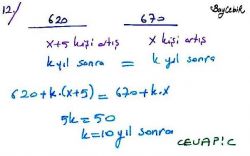 12/ 620 670 BayÇebik
x+5 kişi artış x kişi artış
k yıl sonra = k yıl sonra
620+k.(x+5) = 670+k.x
5k=50
k=10 yıl sonra
CEVAP: C